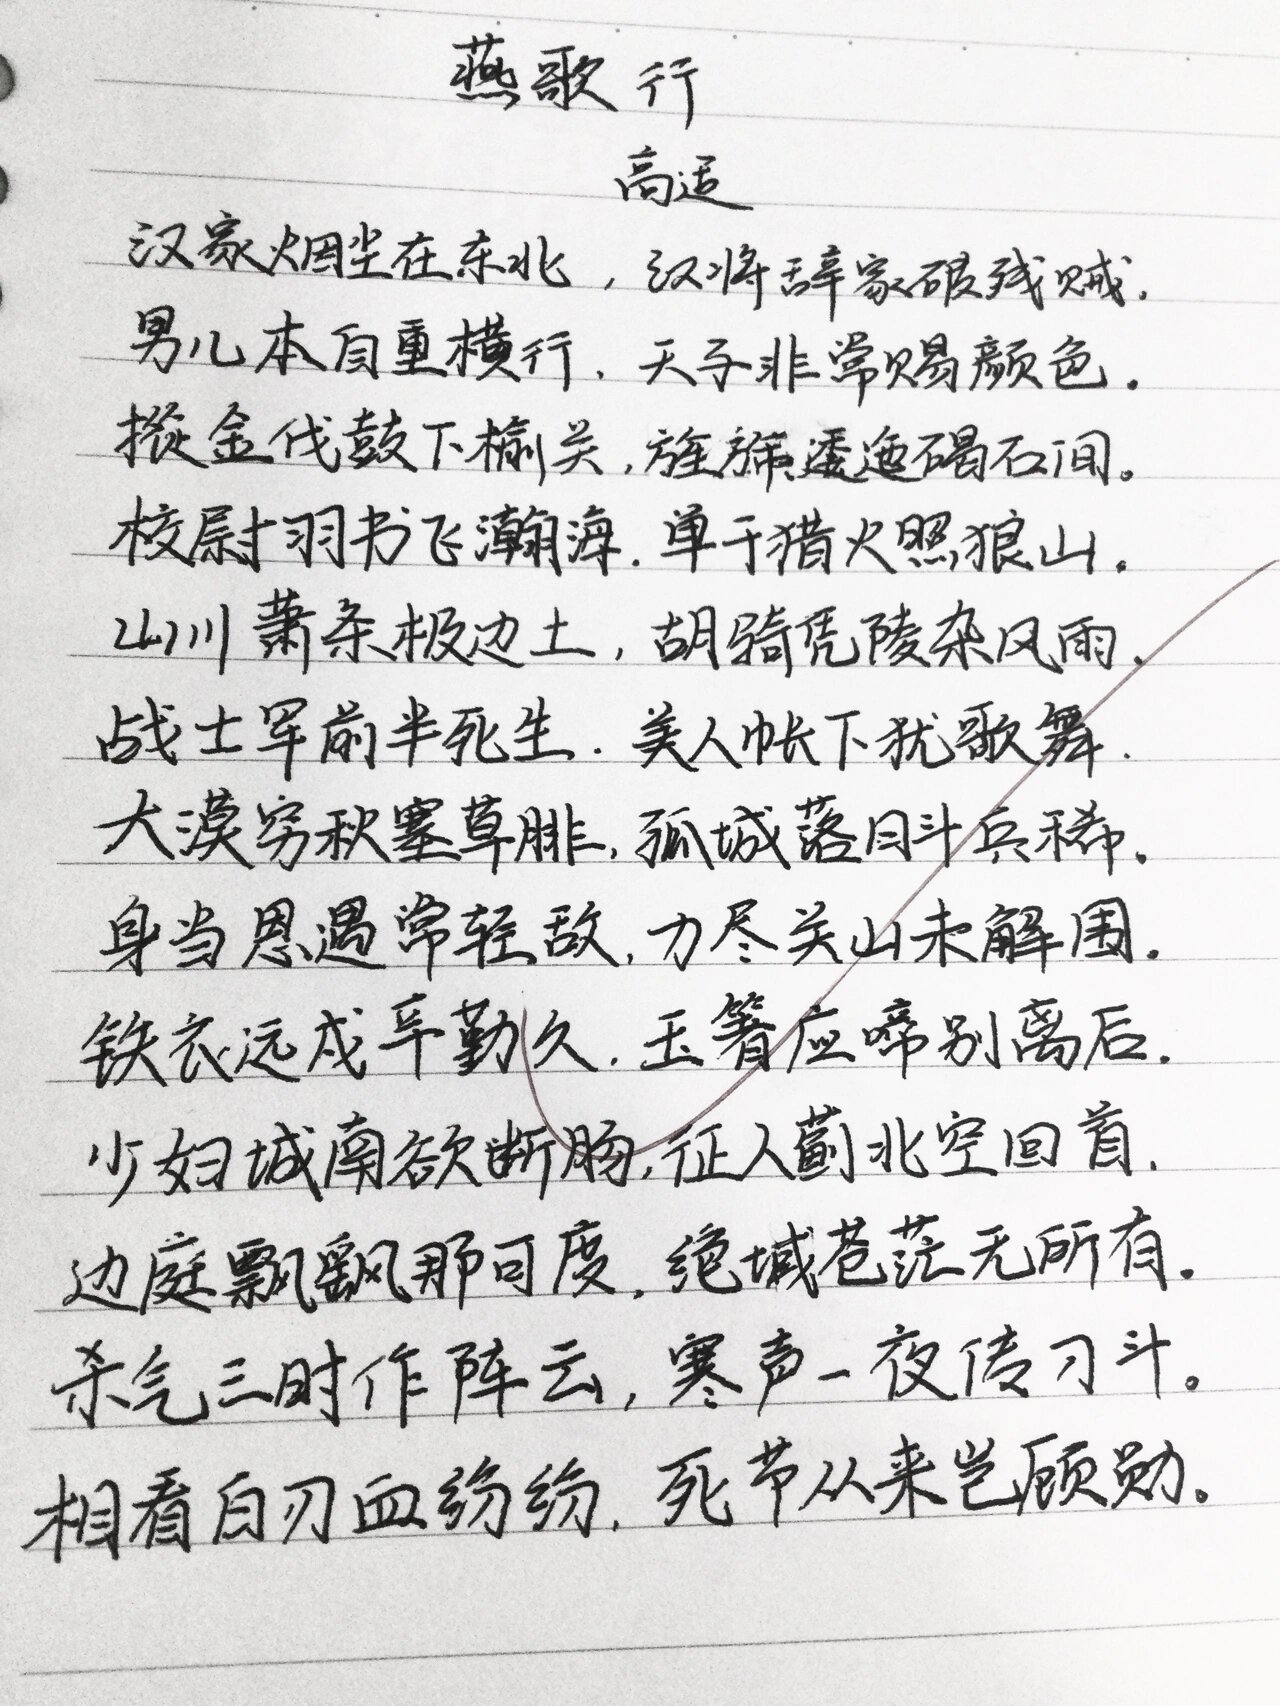 燕歌行
高适
汉家烟尘在东北，汉将辞家破残贼。
男儿本自重横行，天子非常赐颜色。
摐金伐鼓下榆关，旌旆逶迤碣石间。
校尉羽书飞瀚海，单于猎火照狼山。
山川萧条极边土，胡骑凭陵杂风雨。
战士军前半死生，美人帐下犹歌舞。
大漠穷秋塞草腓，孤城落日斗兵稀。
身当恩遇常轻敌，力尽关山未解围。
铁衣远戍辛勤久，玉箸应啼别离后。
少妇城南欲断肠，征人蓟北空回首。
边庭飘飖那可度，绝域苍茫无所有。
杀气三时作阵云，寒声一夜传刁斗。
相看白刃血纷纷，死节从来岂顾勋。